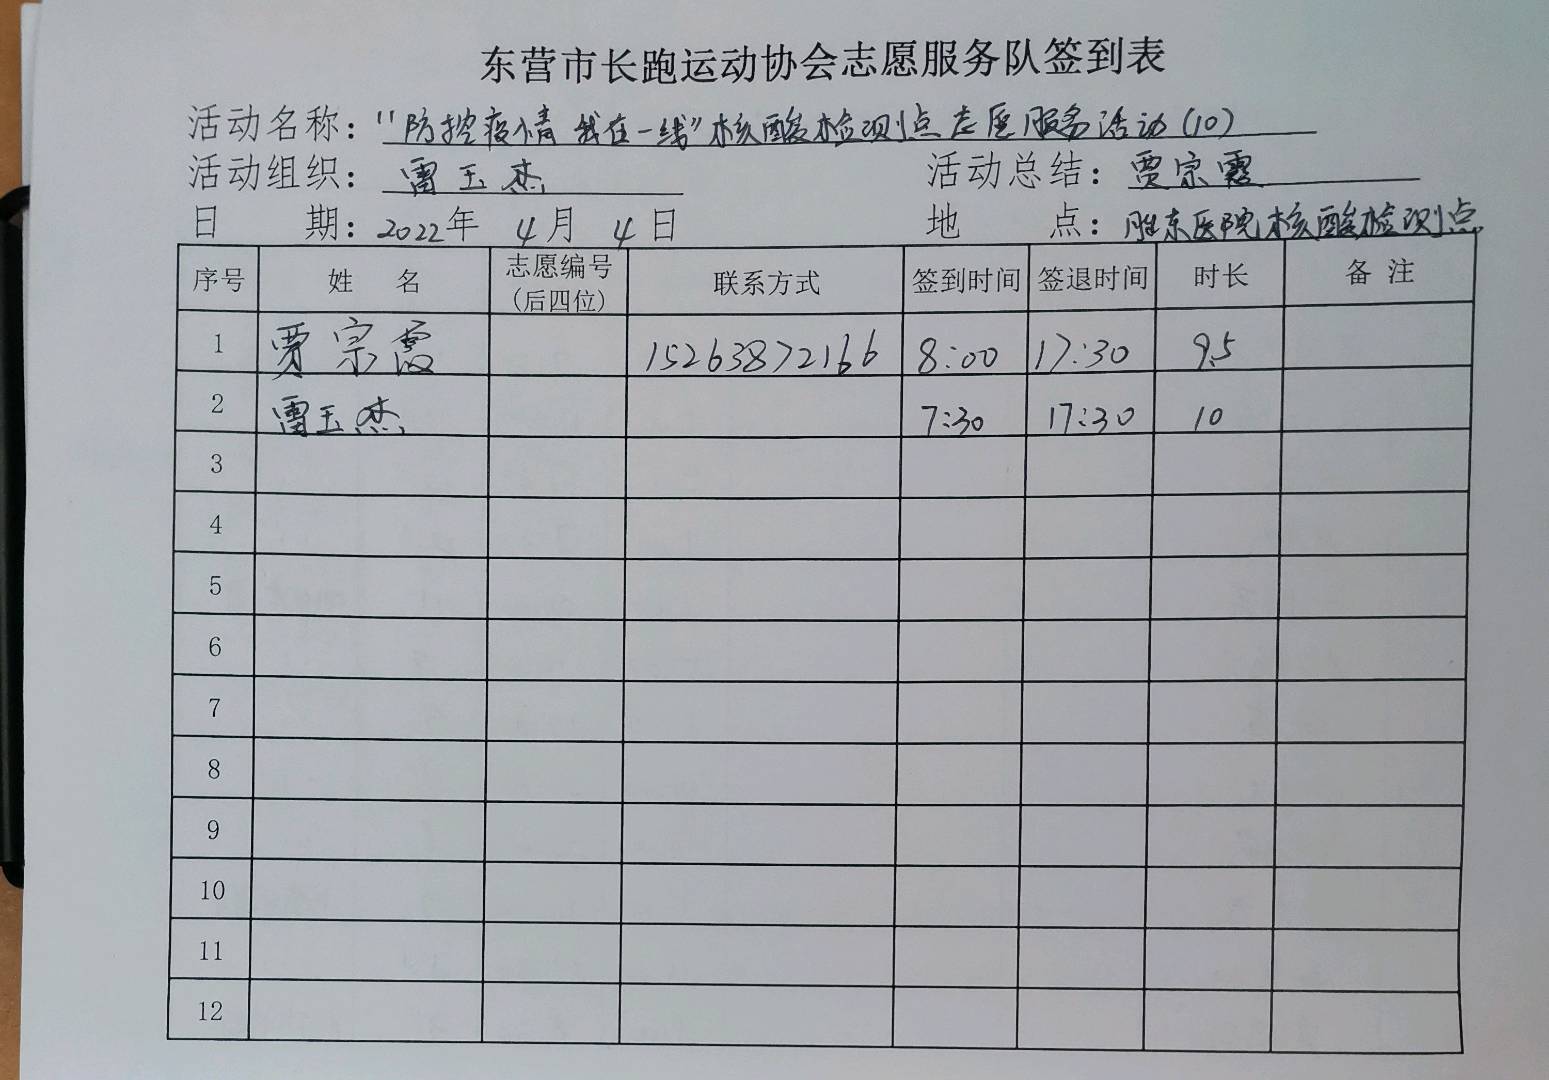 东营市长跑运动协会志愿服务队签到表
活动名称：“防控疫情 我在一线”核酸检测点志愿服务活动(10)
活动组织：雷玉杰 活动总结：贾宗霞
日 期：2022年 4月 4日 地 点：胜东医院核酸检测点
序号 姓 名 志愿编号(后四位) 联系方式 签到时间 签退时间 时长 备 注
1 贾宗霞 15263872166 8:00 17:30 9.5
2 雷玉杰 7:30 17:30 10
3
4
5
6
7
8
9
10
11
12